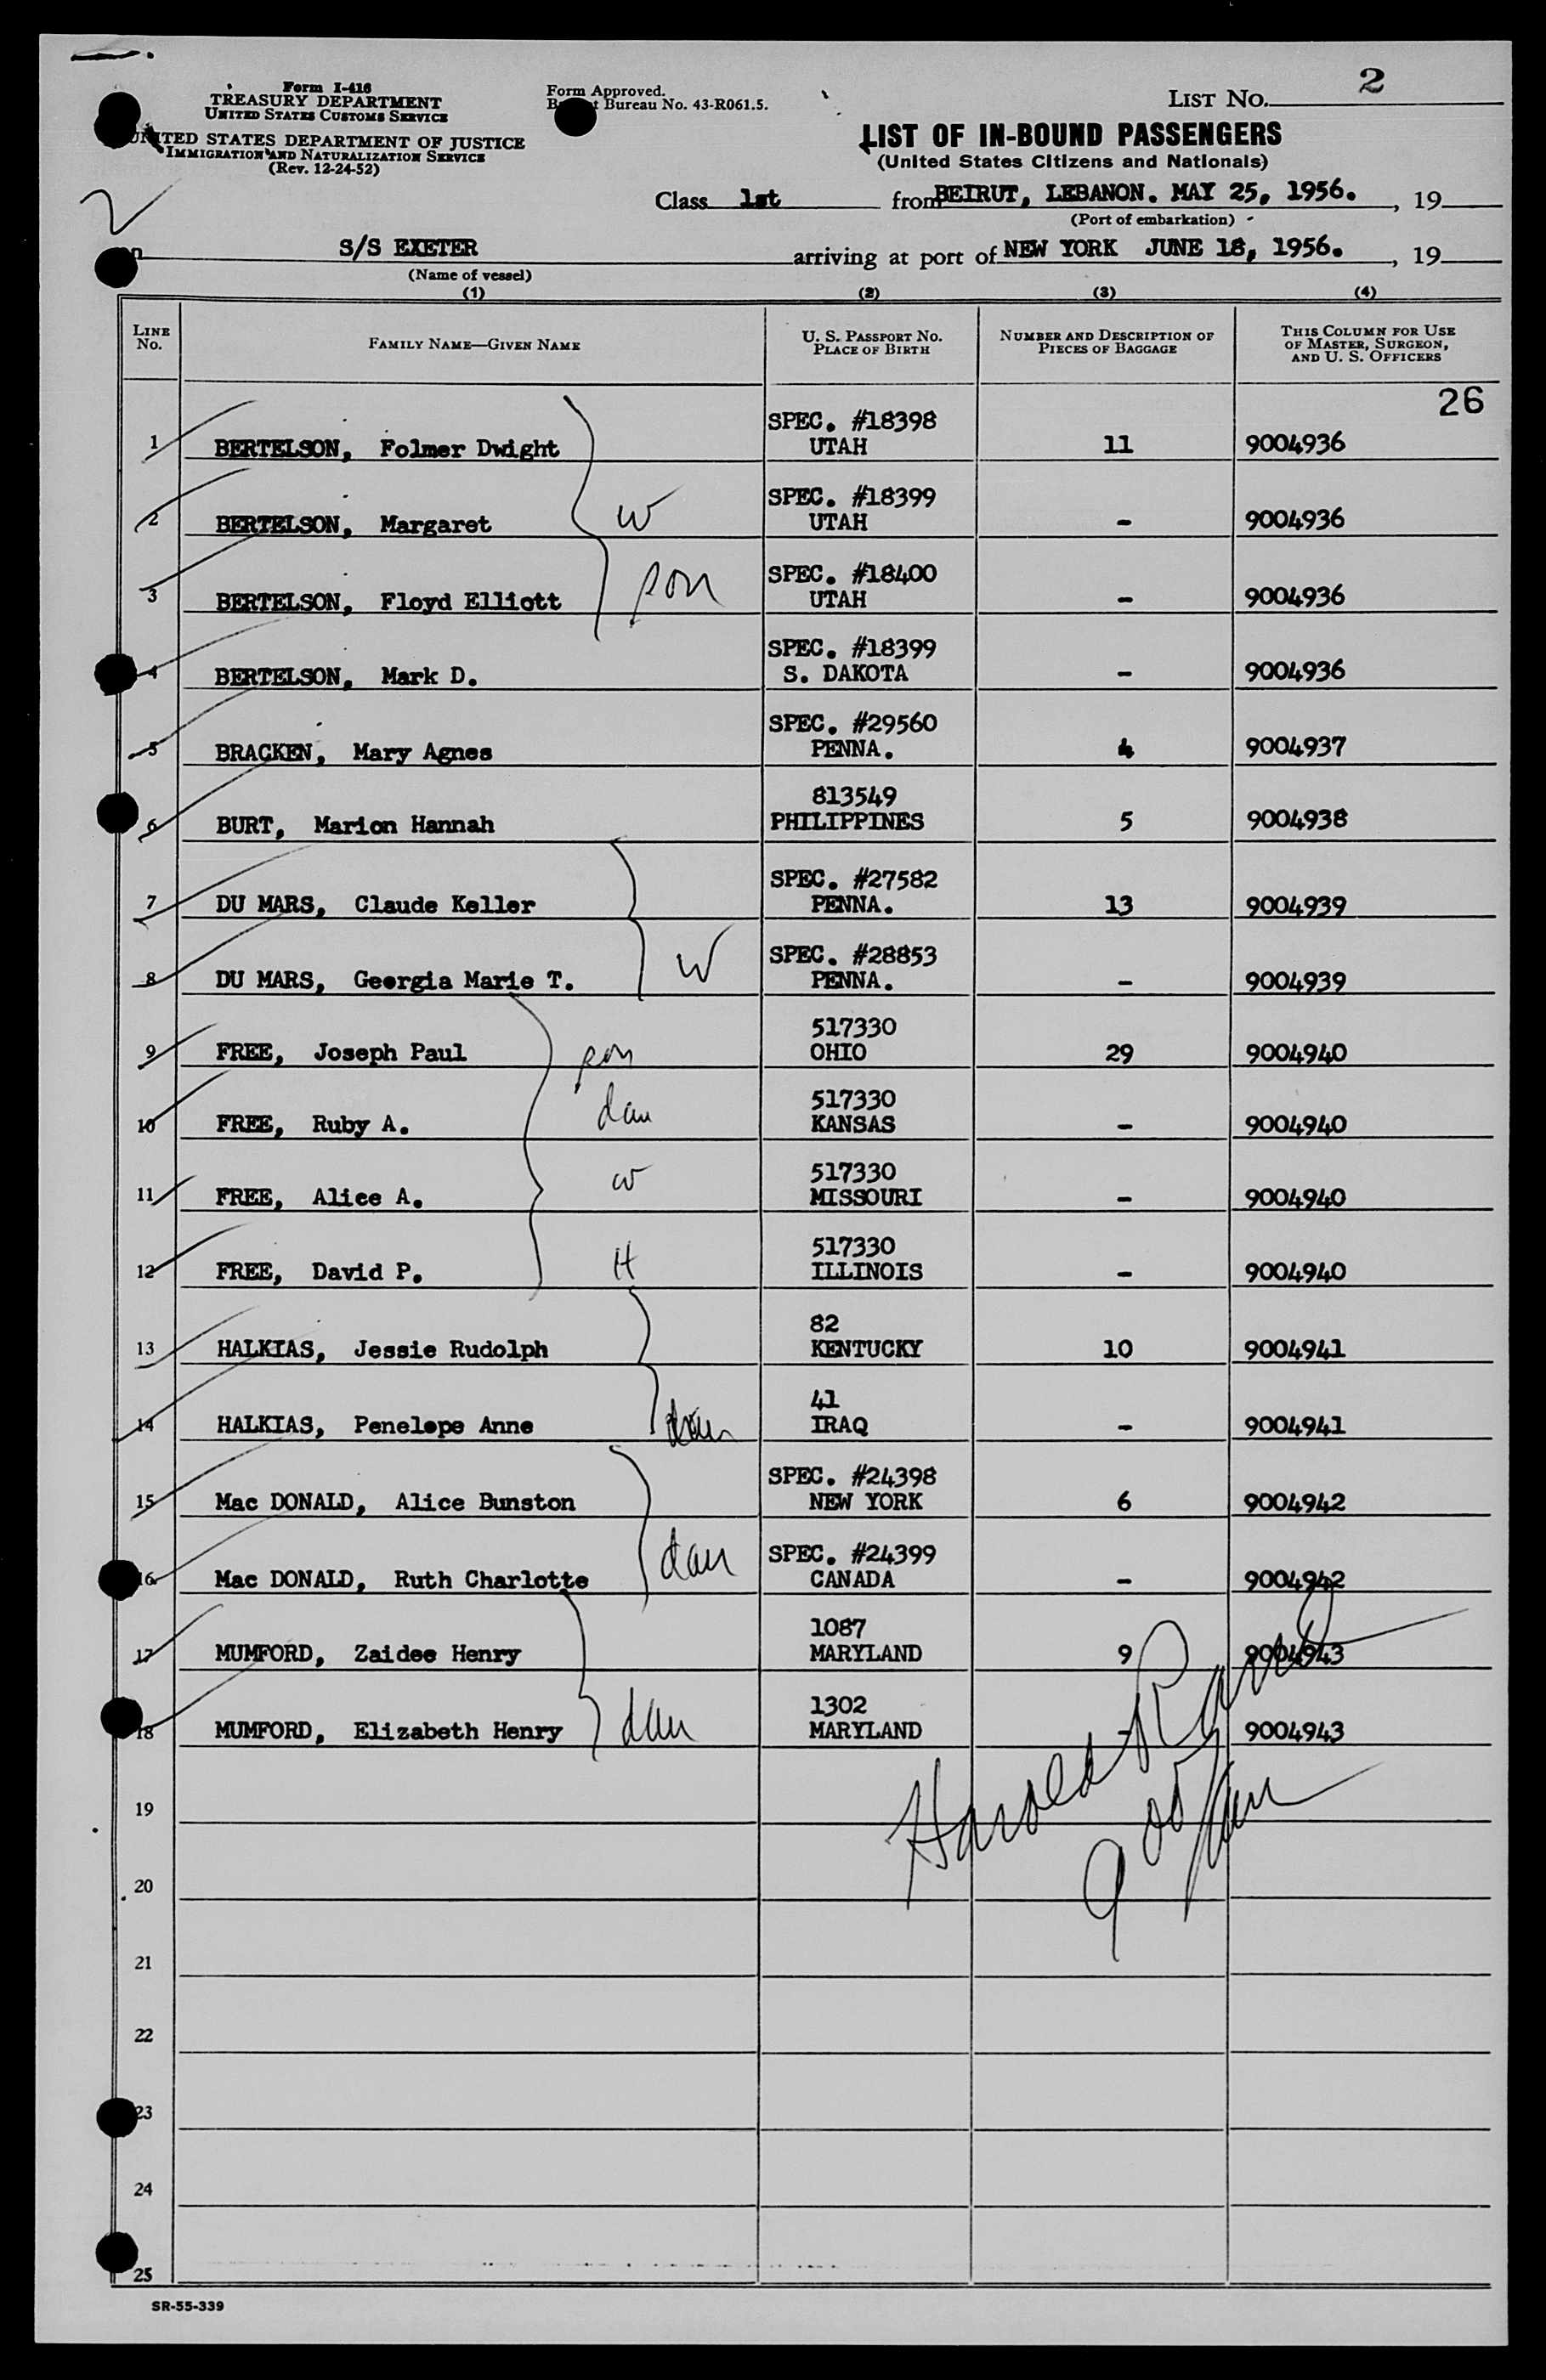 Form I-418
TREASURY DEPARTMENT
UNITED STATES CUSTOMS SERVICE
UNITED STATES DEPARTMENT OF JUSTICE
IMMIGRATION AND NATURALIZATION SERVICE
(Rev. 12-24-52)
Form Approved.
Bureau No. 43-R061.5.
LIST NO. 2
LIST OF IN-BOUND PASSENGERS
(United States Citizens and Nationals)
Class 1st from BEIRUT, LEBANON. MAY 25, 1956. , 19
(Port of embarkation)
S/S EXETER arriving at port of NEW YORK JUNE 18, 1956. , 19
(Name of vessel)
(1) (2) (3) (4)
LINE No. FAMILY NAME—GIVEN NAME U. S. PASSPORT NO. PLACE OF BIRTH NUMBER AND DESCRIPTION OF PIECES OF BAGGAGE THIS COLUMN FOR USE OF MASTER, SURGEON, AND U. S. OFFICERS
26
SPEC. #18398
1 BERTELSON, Folmer Dwight UTAH 11 9004936
SPEC. #18399
2 BERTELSON, Margaret W UTAH - 9004936
SPEC. #18400
3 BERTELSON, Floyd Elliott son UTAH - 9004936
SPEC. #18399
4 BERTELSON, Mark D. S. DAKOTA - 9004936
SPEC. #29560
5 BRACKEN, Mary Agnes PENNA. 4 9004937
813549
6 BURT, Marion Hannah PHILIPPINES 5 9004938
SPEC. #27582
7 DU MARS, Claude Keller PENNA. 13 9004939
SPEC. #28853
8 DU MARS, Georgia Marie T. W PENNA. - 9004939
517330
9 FREE, Joseph Paul son OHIO 29 9004940
517330
10 FREE, Ruby A. dau KANSAS - 9004940
517330
11 FREE, Alice A. W MISSOURI - 9004940
517330
12 FREE, David P. H ILLINOIS - 9004940
82
13 HALKIAS, Jessie Rudolph KENTUCKY 10 9004941
41
14 HALKIAS, Penelope Anne dau IRAQ - 9004941
SPEC. #24398
15 Mac DONALD, Alice Bunston NEW YORK 6 9004942
SPEC. #24399
16 Mac DONALD, Ruth Charlotte dau CANADA - 9004942
1087
17 MUMFORD, Zaidee Henry MARYLAND 9 9004943
1302
18 MUMFORD, Elizabeth Henry dau MARYLAND - 9004943
Harold
19
20
21
22
23
24
25
SR-55-339